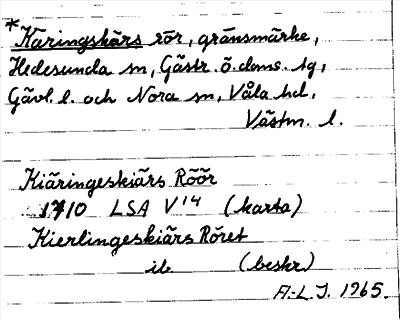 *Käringskärs rör, gränsmärke,
Hedesunda sn, Gästr. ö. doms. tg,
Gävl. l. och Nora sn, Våla hd,
Västm. l.
Kiäringeskiärs Röör
1710 LSA V¹⁴ (karta)
Kierlingeskiärs Röret
ib (beskr.)
A.-L. J. 1965.